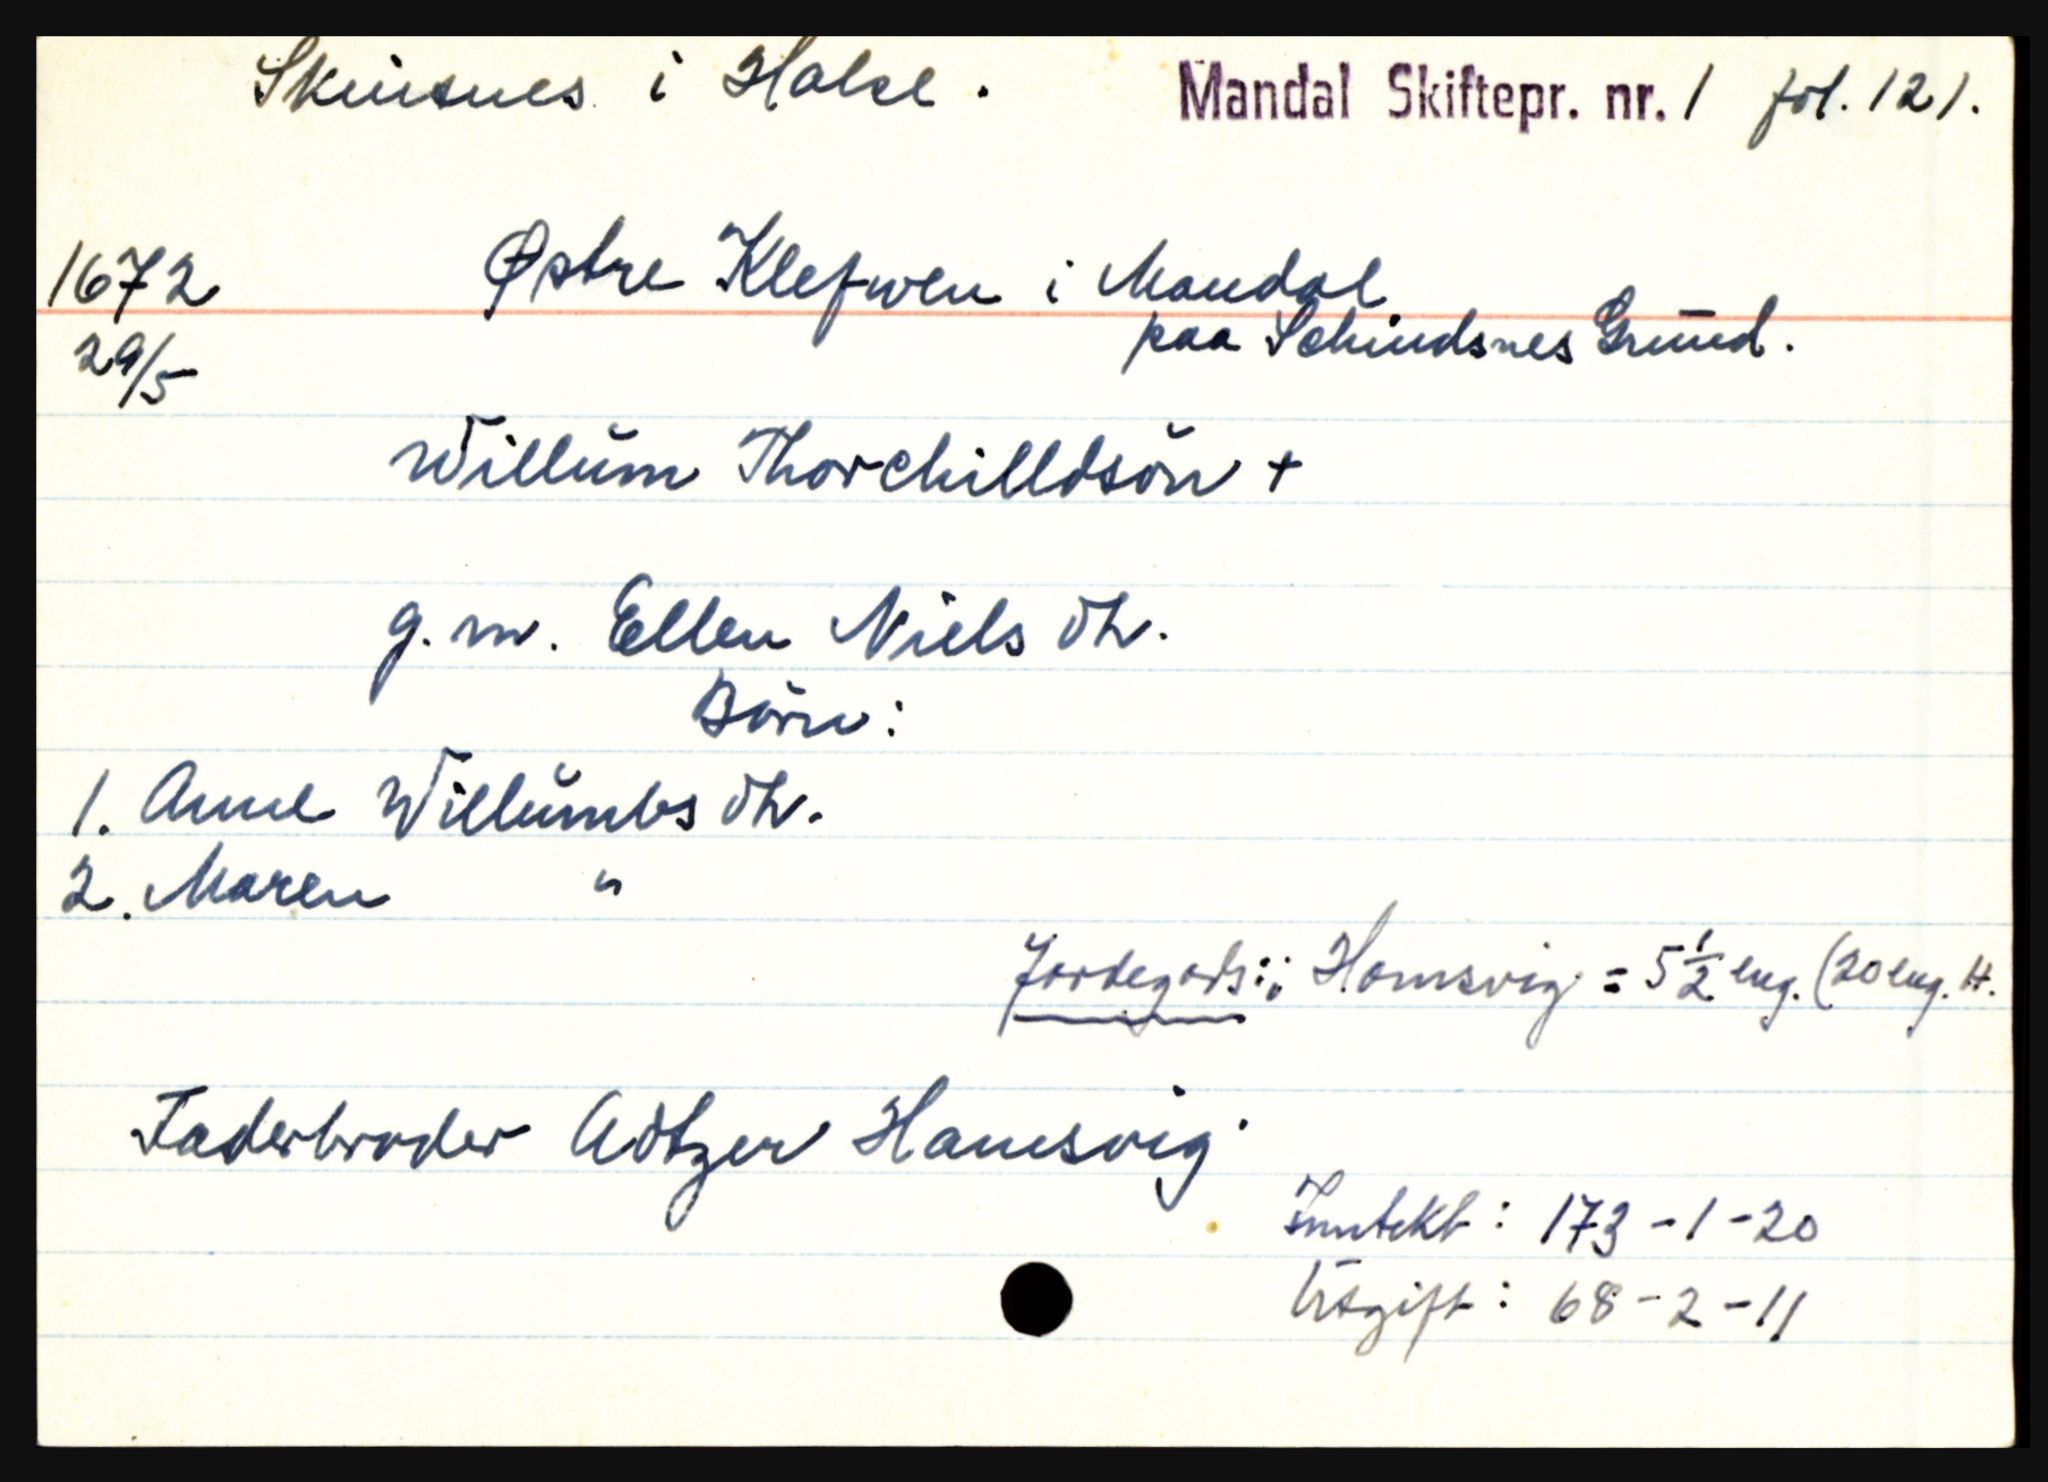 Skinsnes i Halse. Mandal Skiftepr. nr. 1 fol. 121.
1672 Østre Klefwen i Mandal
29/5 paa Schindsnes Grŭnd.
Willŭm Thorchilldsön +
g. m. Ellen Niels dtr.
Börn:
1. Anne Willŭmbs dtr.
2. Maren "
Jordegods: Homsvig = 5 1/2 eng. (20 eng. H.
Faderbroder Adtzer Hamsvig
Inntekt: 173-1-20
Utgift: 68-2-11